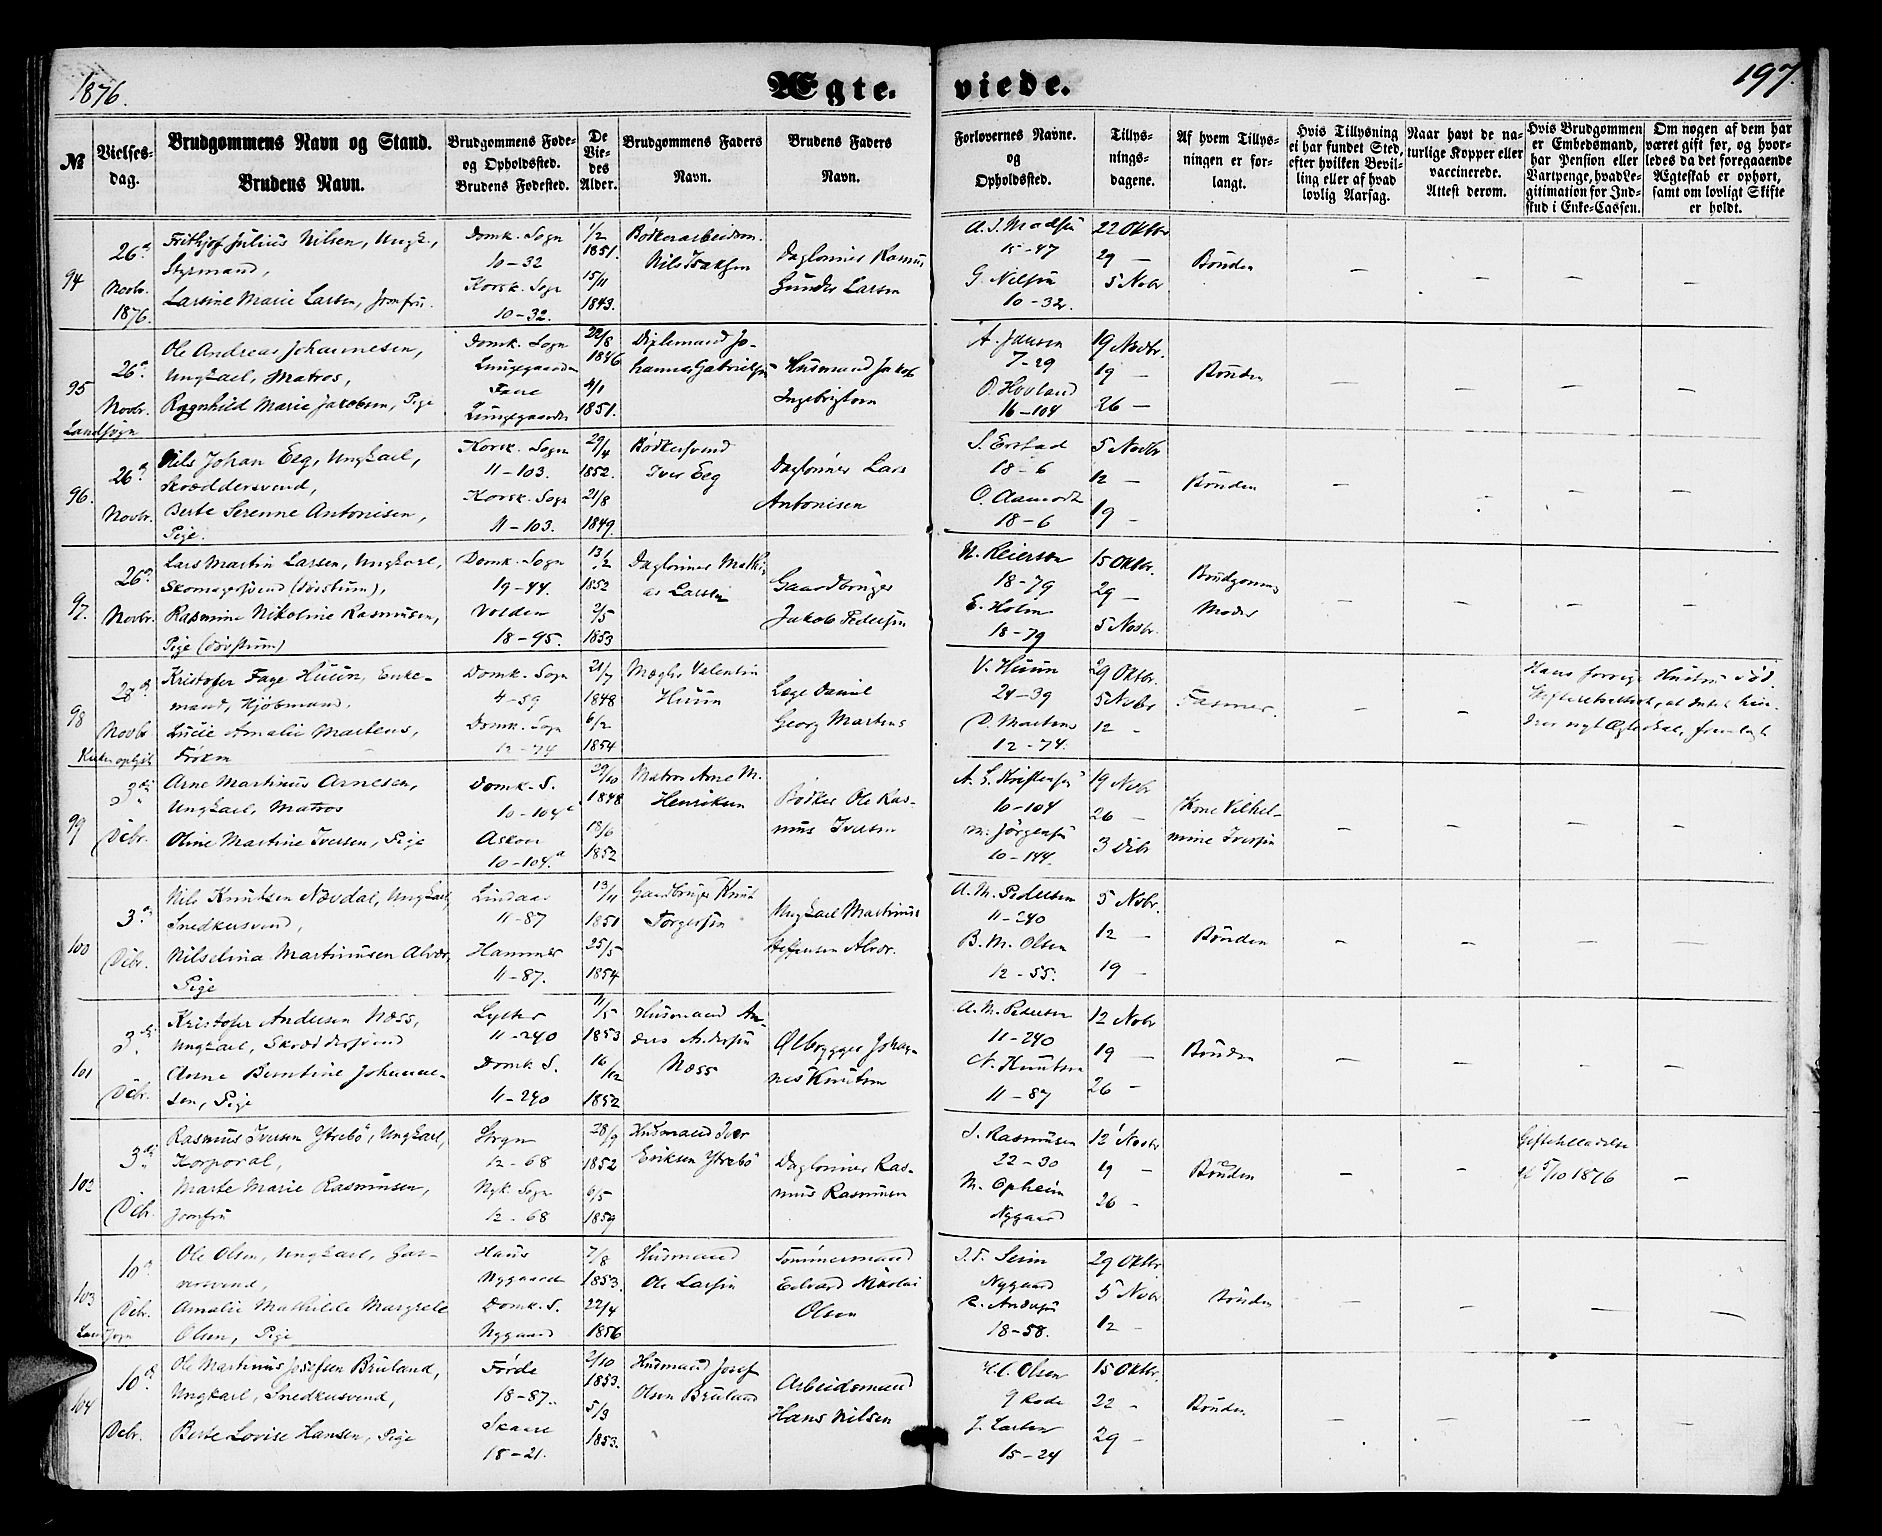 1876.
Ægte-
viede.
197.
№
Vielses-
dag.
Brudgommens Navn og Stand.
Brudens Navn.
Brudgommens Føde-
og Opholdssted.
Brudens Fødested.
De
Vie-
des
Alder.
Brudgommens Faders
Navn.
Brudens Faders
Navn.
Forlovernes Navne.
og
Opholdssted.
Tillys-
nings-
dagene.
Af hvem Tillys-
ningen er for-
langt.
Hvis Tillysning
ei har fundet Sted,
efter hvilken Bevil-
ling eller af hvad
lovlig Aarsag.
Naar havt de na-
turlige Kopper eller
vaccinerede.
Attest derom.
Hvis Brudgommen
er Embedsmand,
har Pension eller
Vartpenge, hvad Le-
gitimation for Ind-
skud i Enke-Cassen.
Om nogen af dem har
været gift før, og hvor-
ledes da det foregaaende
Ægteskab er ophørt,
samt om lovligt Skifte
er holdt.
94
26de
Novbr.
1876.
Frithjof Julius Nilsen, Ungk.,
Styrmand,
Larsine Marie Larsen, Jomfru.
Domk. Sogn
10-32
Korsk. Sogn
10-32.
1/2
1851.
15/11
1843.
Bødkerarbeidsm.
Nils Isaksen
Daglønner Rasmus
Gunder Larsen
15-47
G. Nilsen
10-32.
22 Oktbr
29 —
5 Nobr
Bruden
95
26de
Novbr.
Landsogn
Ole Andreas Johannesen,
Ungkarl, Matros,
Ragnhild Marie Jakobsen, Pige
Domk. Sogn
Lungegaarden
Fane
Lungegaarden
28/8
1846
4/1
1851.
Johannes Gabrielsen
Husmand Jakob
Ingebrigtsen
A. Jansen
7-29
O. Hovland
16-104
19 Novbr.
19 —
26 —
Bruden
96.
26de
Novbr.
Nils Johan Eeg, Ungkarl,
Skræddersvend,
Berte Serenne Antonisen,
Pige.
Korsk. Sogn
11-103.
Korsk. Sogn
11-103.
29/4
1852.
21/8
1849.
Bødkersvend
Iver Eeg
Daglønner Lars
Antonisen
S. Erstad
18-6
O. Aamodt
18-6
5 Novbr
12 —
19 —
Bruden
97.
26de
Novbr.
Lars Martin Larsen, Ungkarl,
Rasmine Nikoline Rasmusen,
Domk. Sogn
19-44.
Volden
18-95.
13/12
1852
2/5
1853
Daglønner Mathi-
as Larsen
Gaardbruger
Jakob Pedersen
N. Reiersen
18-79
E. Holm
18-79
15 Oktbr.
29 —
5 Novbr.
Brudgommens
Moder
98
28de
Novbr
Kristofer Fage Huun, Enke-
mand, Kjøbmand.
Lucie Amalie Martens,
Frøken
Domk. Sogn
4-59
Domk. Sogn
12-74
21/7
1848
6/2
1854
Mægler Valentin
Huun
Læge Daniel
Georg Martens
V. Huun
24-39
D. Martens
12-74.
29 Oktbr.
5 Novbr
12 -
Fasmer.
Hans forrige Hustru død.
99
3die
Debr.
Arne Martinus Arnesen,
Ungkarl, Matros
Oline Martine Iversen, Pige
Domk. S.
10-104a
Askøen
10-104.a
29/10
1848
18/6
1852
Matros Arne M.
Henriksen
Bødker Ole Ras-
mus Iversen
10-104
M. Jørgensen
10-144.
19 Nobr
26 —
3 Debr
Kone Vilhel-
mine Iversen
100
3die
Debr.
Nils Knutsen Nøvdal, Ungkarl,
Snedkersvend,
Nilselina Martinusen Alvær,
Pige
Lindaas
11-87
Hammer
11-87.
13/11
1851
25/5
1854
Gaardbruger Knut
Torgersen
Ungkarl Martinus
Steffensen Alvær.
A. M. Pedersen
11-240
B. M. Olsen
12-55.
5 Nobr.
12 —
19 —
Bruden
101
3die
Debr.
Kristofer Andersen Næss,
Ungkarl, Skræddersvend
Anna Berntine Johanne-
sen, Pige
Lyster
11-240
Domk. S.
11-240
11/5
1853
16/12
1852
Husmand An-
ders Andersen
Næss
Ølbrygger Johan-
nes Knutsen
A. M. Pedersen
11-240
N. Knutsen
11-87
12 Nobr
19 —
26 —
Bruden
102
3die
Debr.
Rasmus Iversen Ytrebø, Ungkarl,
Korporal,
Marte Marie Rasmusen,
Jomfru
12-68
Nyk. Sogn
12-68
28/9
1852
6/5
1859
Husmand Iver
Eriksen Ytrebø
Daglønner Ras-
mus Rasmusen
J. Rasmusen
22-30
M. Opheim
Nygaard
12 Novbr
19 —
26 -
Bruden
Giftetilladelse
5/10 1876
103
10de
Debr.
Landsogn
Ole Olsen, Ungkarl, Gar-
versvend,
Amalie Mathilde Margrete
Olsen, Pige
Haus
Nygaard
Domk. S.
Nygaard
7/8
1853.
22/4
1856
Husmand
Ole Larsen
Tømmermand
Edvard Nikolai
Olsen
Nygaard
R. Andersen
18-58.
29 Oktbr
5 Nobr
12 —
Bruden
104
10de
Debr.
Ole Martinus Josefsen Bruland,
Ungkarl, Snedkersvend,
Berte Lovise Hansen, Pige
Førde
18-87.
Skaare
18-21.
2/10
1853.
5/3
1853.
Husmand Josef
Olsen Bruland
Arbeidsmand
Hans Nilsen
H. C. Olsen
9 Rode
J. Larsen
15-24
15 Oktbr.
22 -
29 —
Bruden